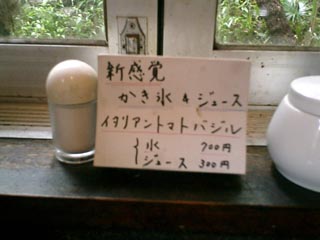 新感覚
かき氷 & ジュース
イタリアントマトバジル
氷 700円
ジュース 300円